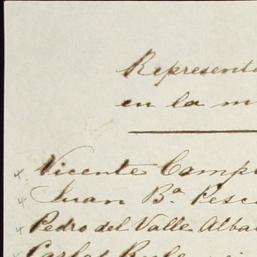 Represent
en la m
Vicente Camp
Juan B.ª Pesc
Pedro del Valle Alba
Carlos